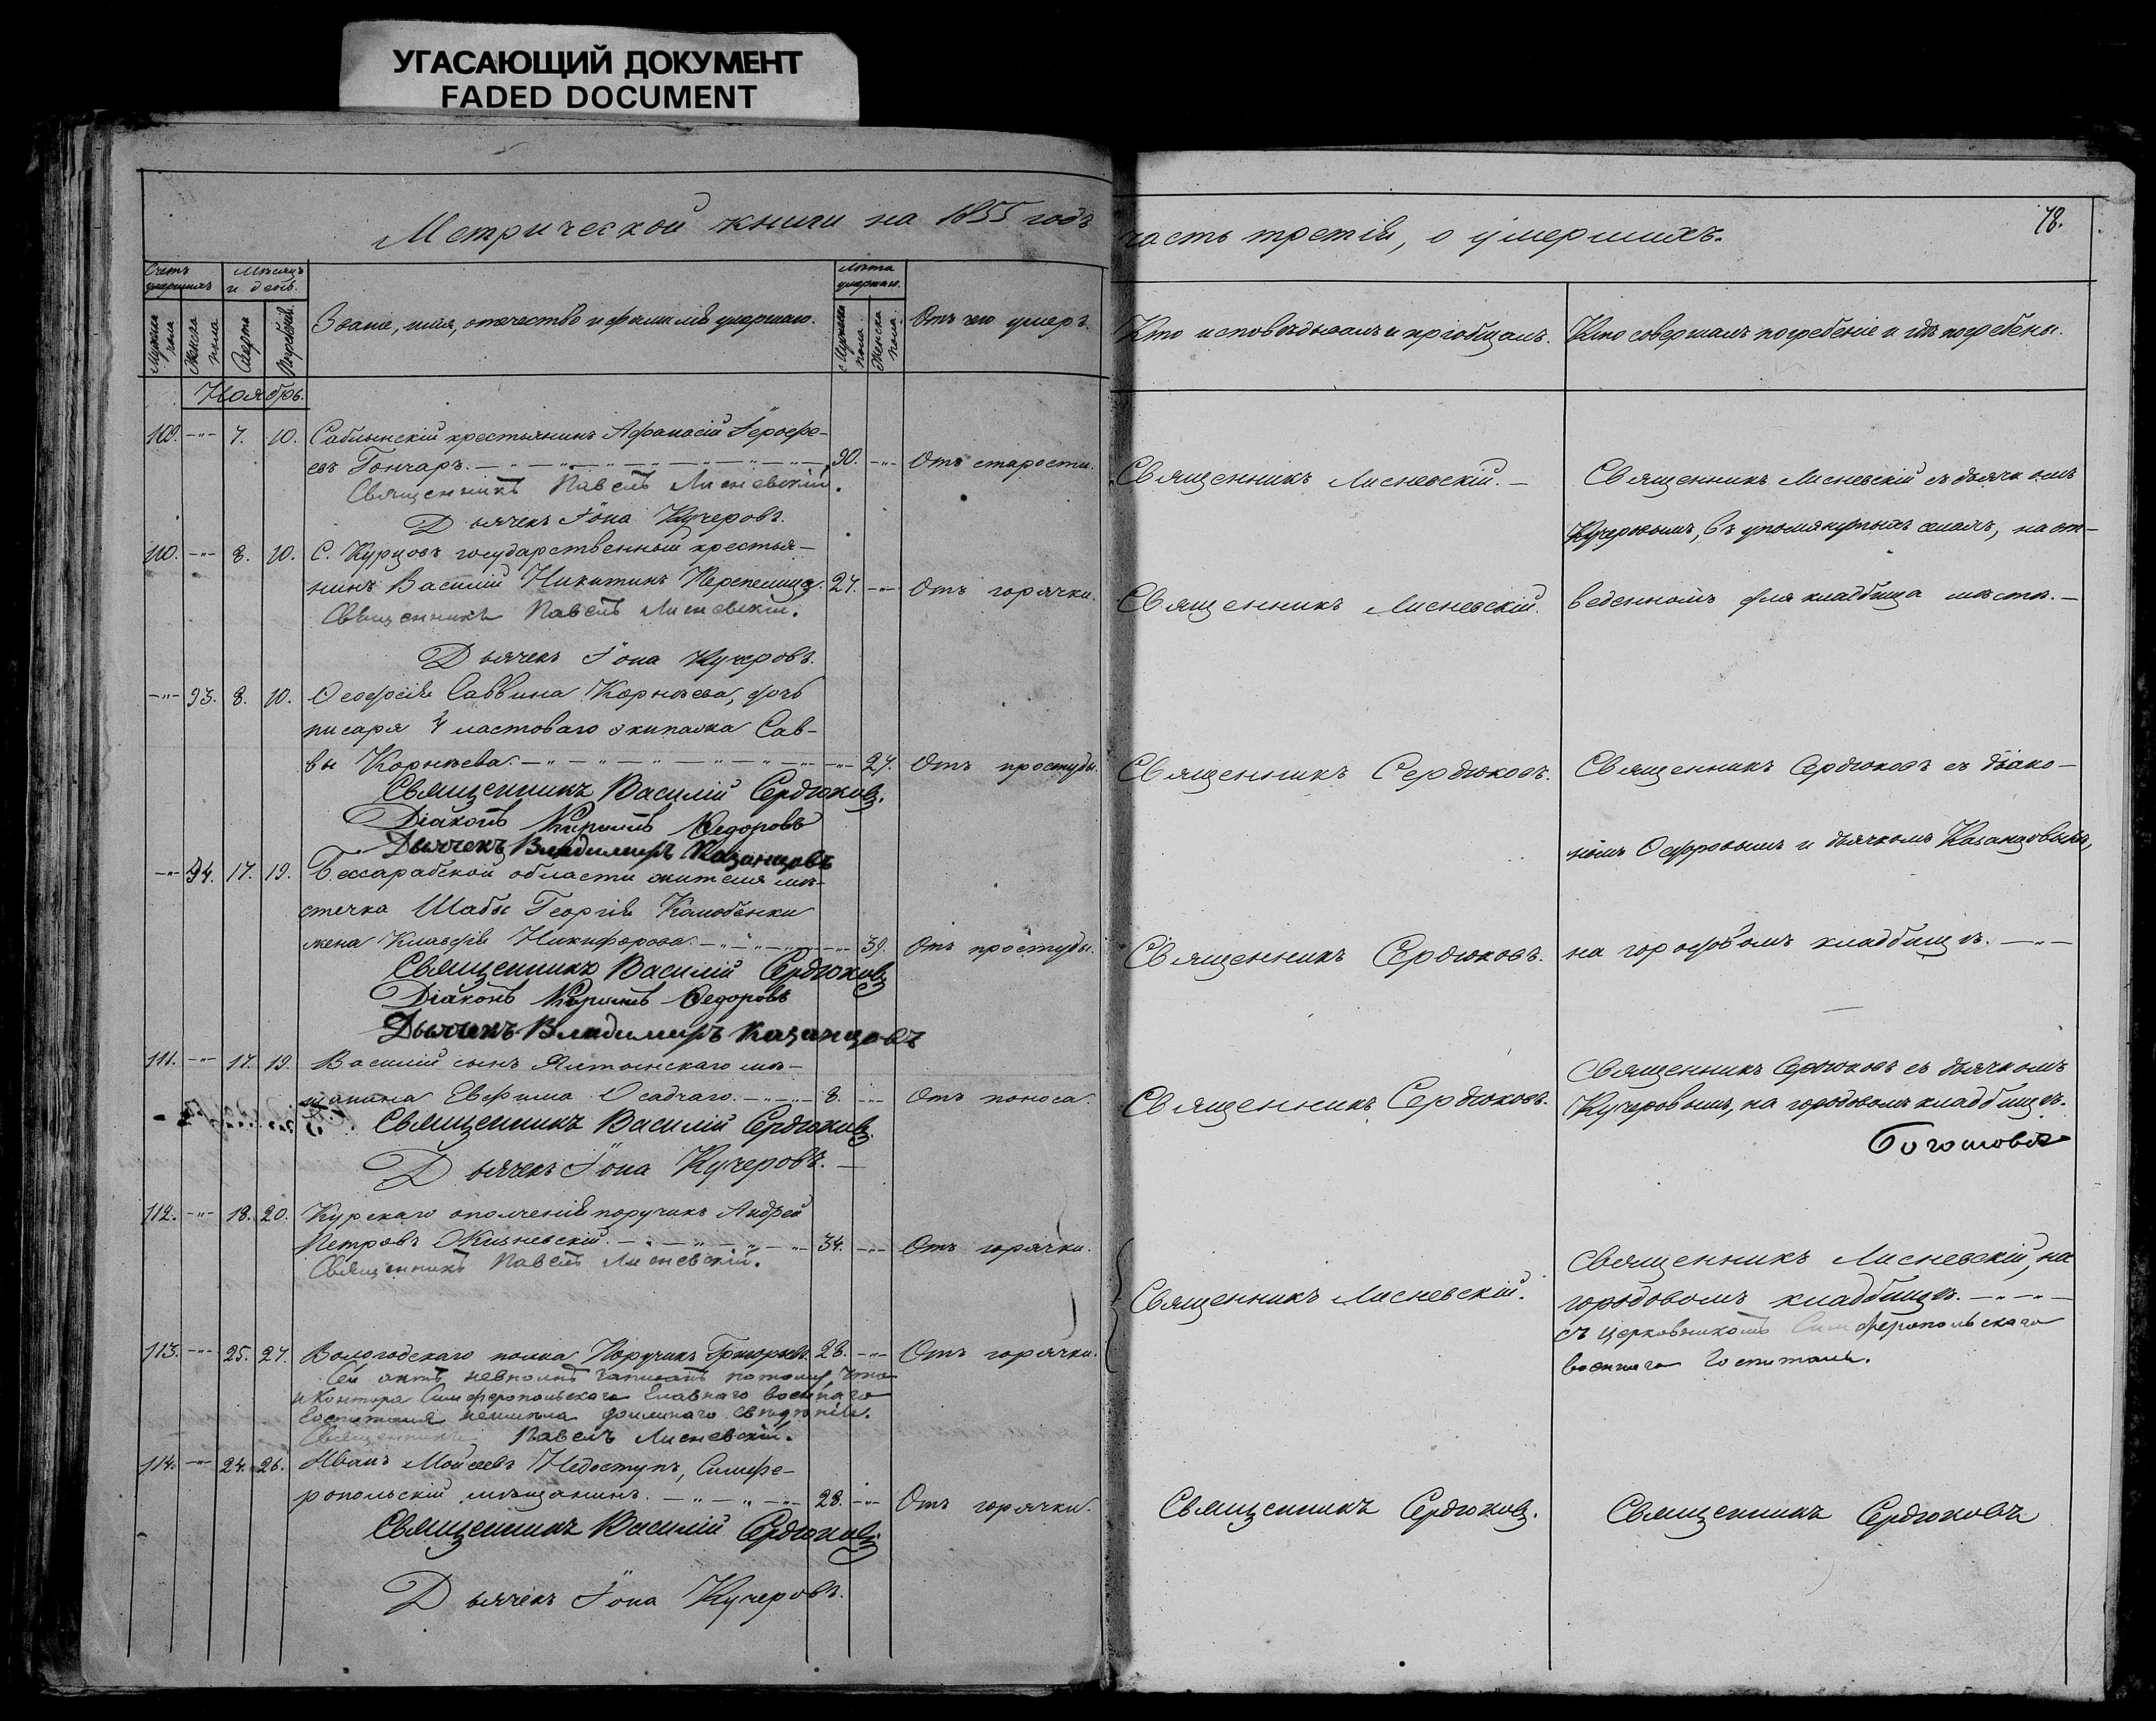 УГАСАЮЩИЙ ДОКУМЕНТ
FADED DOCUMENT
Метрической книги на 1855 годъ
часть третія, о умершихъ.
78.
Счетъ умершихъ
Мѣсяцъ и день.
Звание, имя, отчество и фамилія умершаго.
Лѣта умершаго.
Отъ чего умеръ.
Кто исповѣдывалъ и пріобщалъ.
Кто совершалъ погребеніе и гдѣ погребены.
Мужска пола
Женска пола
Смерти
Погребенія.
Мужска пола.
Женска пола.
Ноябрь.
109. -"- 7. 10. Саблынскій крестьянинъ Афанасій Іерофе-
евъ Гончаръ. 90. -"- Отъ старости.
Священникъ Лисневскій.
Священникъ Лисневскій съ дьячкомъ
Священникъ Павелъ Лисневскій.
Дьячекъ Іона Кучеровъ.
Кучеровымъ, въ упомянутыхъ селахъ, на от-
110. -"- 8. 10. С. Курцовъ государственный крестья-
нинъ Василій Никитинъ Перепелица. 27. -"- Отъ горячки.
Священникъ Лисневскій.
веденномъ для кладбища мѣстѣ.
Священникъ Павелъ Лисневскій.
Дьячекъ Іона Кучеровъ.
-"- 93. 8. 10. Ѳеодосія Саввина Корнѣева, дочь
писаря 4 ластоваго экипажа Сав-
вы Корнѣева. -"- 27. Отъ простуды.
Священникъ Сердюковъ.
Священникъ Сердюковъ съ діако-
Священникъ Василій Сердюковъ.
Діаконъ Кириллъ Ѳедоровъ
Дьячекъ Владимиръ Казанцовъ
номъ Ѳедоровымъ и дьячкомъ Казанцовымъ,
-"- 94. 17. 19. Бессарабской области жителя мѣ-
стечка Шабы Георгія Калюбенки
жена Клавдія Никифорова. -"- 39. Отъ простуды.
Священникъ Сердюковъ.
на городовомъ кладбищѣ.
Священникъ Василій Сердюковъ
Діаконъ Кириллъ Ѳедоровъ
Дьячекъ Владимиръ Казанцовъ
111. -"- 17. 19. Василій сынъ Ялтынскаго мѣ-
щанина Евфима Осадчаго. 8. -"- Отъ поноса.
Священникъ Сердюковъ.
Священникъ Сердюковъ съ дьячкомъ
Кучеровымъ, на городовомъ кладбищѣ.
Священникъ Василій Сердюковъ.
Дьячекъ Іона Кучеровъ.
112. -"- 18. 20. Курскаго ополченія поручикъ Андрей
Петровъ Жизневскій. 34. -"- Отъ горячки.
Священникъ Павелъ Лисневскій.
Священникъ Лисневскій.
Священникъ Лисневскій, на
городовомъ кладбищѣ.
съ церковникомъ Симферопольскаго
военнаго Госпиталя.
113. -"- 25. 27. Вологодскаго полка Поручикъ Григорьевъ. 28. -"- Отъ горячки.
Сей актъ невполнѣ записанъ потому, что
и Контора Симферопольскаго Главнаго военнаго
Госпиталя неимѣла должнаго свѣдѣнія.
Священникъ Павелъ Лисневскій.
114. -"- 24. 26. Иванъ Мойсеевъ Недоступъ, Симфе-
ропольскій мѣщанинъ. 28. -"- Отъ горячки.
Священникъ Сердюковъ.
Священникъ Сердюковъ
Священникъ Василій Сердюковъ.
Дьячекъ Іона Кучеровъ.